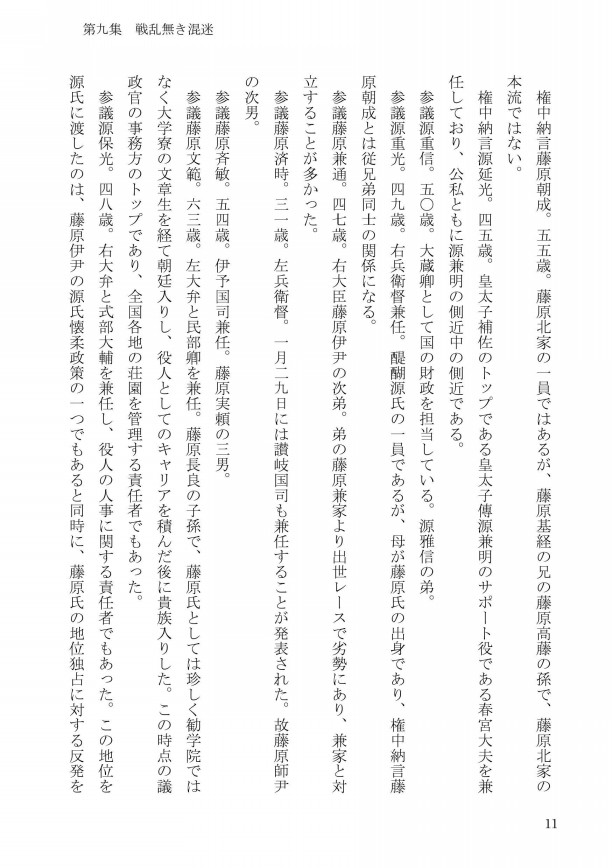 第九集　戦乱無き混迷
　権中納言藤原朝成。五五歳。藤原北家の一員ではあるが、藤原基経の兄の藤原高藤の孫で、藤原北家の
本流ではない。
　権中納言源延光。四五歳。皇太子補佐のトップである皇太子傳源兼明のサポート役である春宮大夫を兼
任しており、公私ともに源兼明の側近中の側近である。
　参議源重信。五〇歳。大蔵卿として国の財政を担当している。源雅信の弟。
　参議源重光。四九歳。右兵衛督兼任。醍醐源氏の一員であるが、母が藤原氏の出身であり、権中納言藤
原朝成とは従兄弟同士の関係になる。
　参議藤原兼通。四七歳。右大臣藤原伊尹の次弟。弟の藤原兼家より出世レースで劣勢にあり、兼家と対
立することが多かった。
　参議藤原済時。三一歳。左兵衛督。一月二九日には讃岐国司も兼任することが発表された。故藤原師尹
の次男。
　参議藤原斉敏。五四歳。伊予国司兼任。藤原実頼の三男。
　参議藤原文範。六三歳。左大弁と民部卿を兼任。藤原長良の子孫で、藤原氏としては珍しく勧学院では
なく大学寮の文章生を経て朝廷入りし、役人としてのキャリアを積んだ後に貴族入りした。この時点の議
政官の事務方のトップであり、全国各地の荘園を管理する責任者でもあった。
　参議源保光。四八歳。右大弁と式部大輔を兼任し、役人の人事に関する責任者でもあった。この地位を
源氏に渡したのは、藤原伊尹の源氏懐柔政策の一つでもあると同時に、藤原氏の地位独占に対する反発を
11